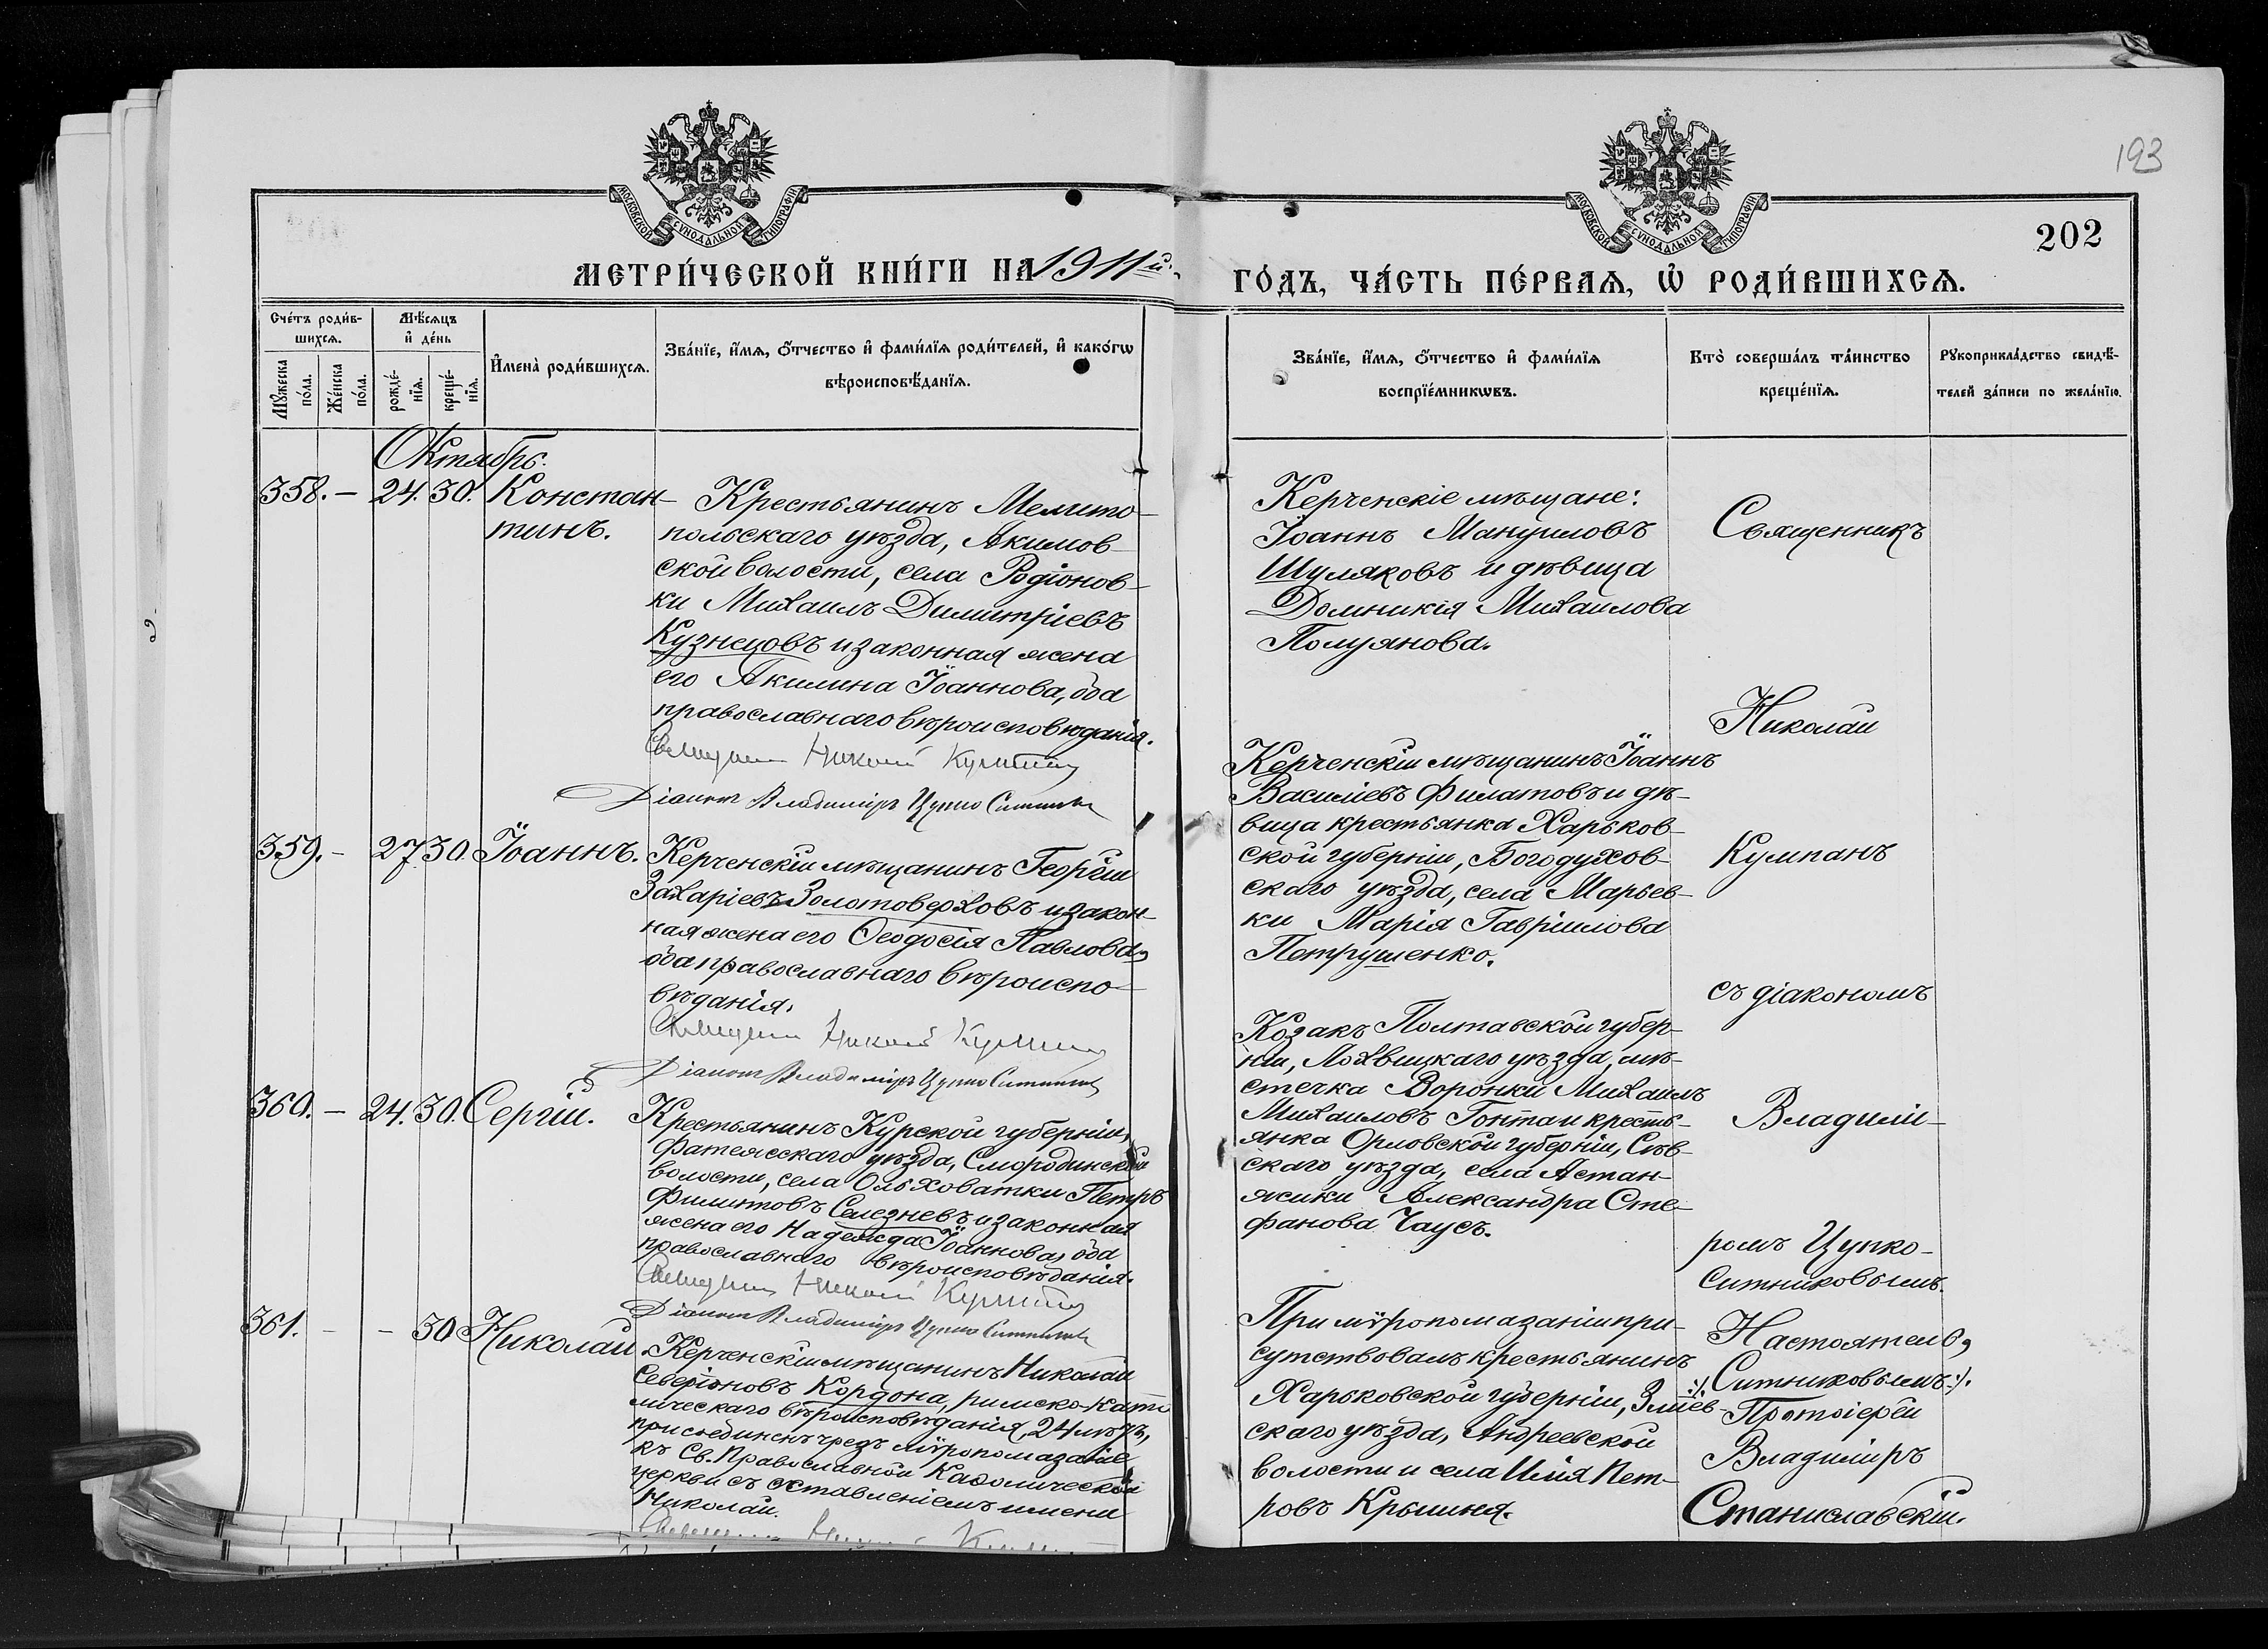 193
202
МОСКОВСКОЙ СѴНОДАЛЬНОЙ ТИПОГРАФІИ
МОСКОВСКОЙ СѴНОДАЛЬНОЙ ТИПОГРАФІИ
МЕТРИ́ЧЕСКОЙ КНИ́ГИ НА 1911й.
ГО́ДЪ, ЧА́СТЬ ПЕ́РВАѦ, Ѡ҆ РОДИ́ВШИХСѦ.
Сче́тъ роди́в-
шихсѧ.
Мꙋ́жеска по́ла.
Же́нска по́ла.
Мѣ́сѧцъ
и҆ де́нь
рожде́-
нїѧ.
креще́-
нїѧ.
И҆мена̀ роди́вшихсѧ.
Зва́нїе, и҆́мѧ, ѻ҆́тчество и҆ фами́лїѧ роди́телей, и҆ како́гѡ
вѣроисповѣ́данїѧ.
Зва́нїе, и҆́мѧ, ѻ҆́тчество и҆ фами́лїѧ
воспрїе́мникѡвъ.
Кто̀ соверша́лъ та́инство
креще́нїѧ.
Рꙋкоприкла́дство свидѣ́-
телей за́писи по жела́нїю.
Октябрь.
358. – 24. 30. Констан-
тинъ.
Крестьянинъ Мелито-
польскаго уѣзда, Акимов-
ской волости, села Родіонов-
ки Михаилъ Димитріевъ
Кузнецовъ и законная жена
его Акилина Іоаннова, оба
православнаго вѣроисповѣданія.
Священникъ Николай Кумпанъ
Діаконъ Владиміръ Цупко Ситниковъ
Керченскіе мѣщане:
Іоаннъ Мануиловъ
Шуляковъ и дѣвица
Домникія Михаилова
Полуянова.
Священникъ
Николай
Кумпанъ
съ діакономъ
Владимі-
ромъ Цупко-
Ситниковымъ.
359. – 27 30. Іоаннъ.
Керченскій мѣщанинъ Георгій
Захаріевъ Золотоверховъ и закон-
ная жена его Ѳеодосія Павлова,
оба православнаго вѣроиспо-
вѣданія.
Священникъ Николай Кумпанъ
Діаконъ Владиміръ Цупко Ситниковъ
Керченскій мѣщанинъ Іоаннъ
Василіевъ Филатовъ и дѣ-
вица крестьянка Харьков-
ской губерніи, Богодухов-
скаго уѣзда, села Марьев-
ки Марія Гавріилова
Петрушенко.
360. – 24. 30. Сергій.
Крестьянинъ Курской губерніи,
Фатежскаго уѣзда, Смородинской
волости, села Ольховатки Петръ
Филиповъ Селезневъ и законная
жена его Надежда Іоаннова, оба
православнаго вѣроисповѣданія.
Священникъ Николай Кумпанъ
Діаконъ Владиміръ Цупко Ситниковъ
Козакъ Полтавской губер-
ніи, Лохвицкаго уѣзда, мѣ-
стечка Воронки Михаилъ
Михаиловъ Гонта и кресть-
янка Орловской губерніи, Сѣв-
скаго уѣзда, села Астан-
жики Александра Сте-
фанова Чаусъ.
361. – – 30 Николай
Керченскій мѣщанинъ Николай
Северіановъ Кордона, римско-като
лическаго вѣроисповѣданія, 24 лѣтъ,
присоединенъ чрезъ мѵропомазаніе
къ Св. Православной Каѳолической
церкви съ оставленіемъ имени
Николай.
Священникъ Николай Кумпанъ
При мѵропомазаніи при-
сутствовалъ крестьянинъ
Харьковской губерніи, Зміев-
скаго уѣзда, Андреевской
волости и села Илія Пет-
ровъ Крышня.
Настоятель,
Ситниковымъ
Протоіерей
Владиміръ
Станиславскій.